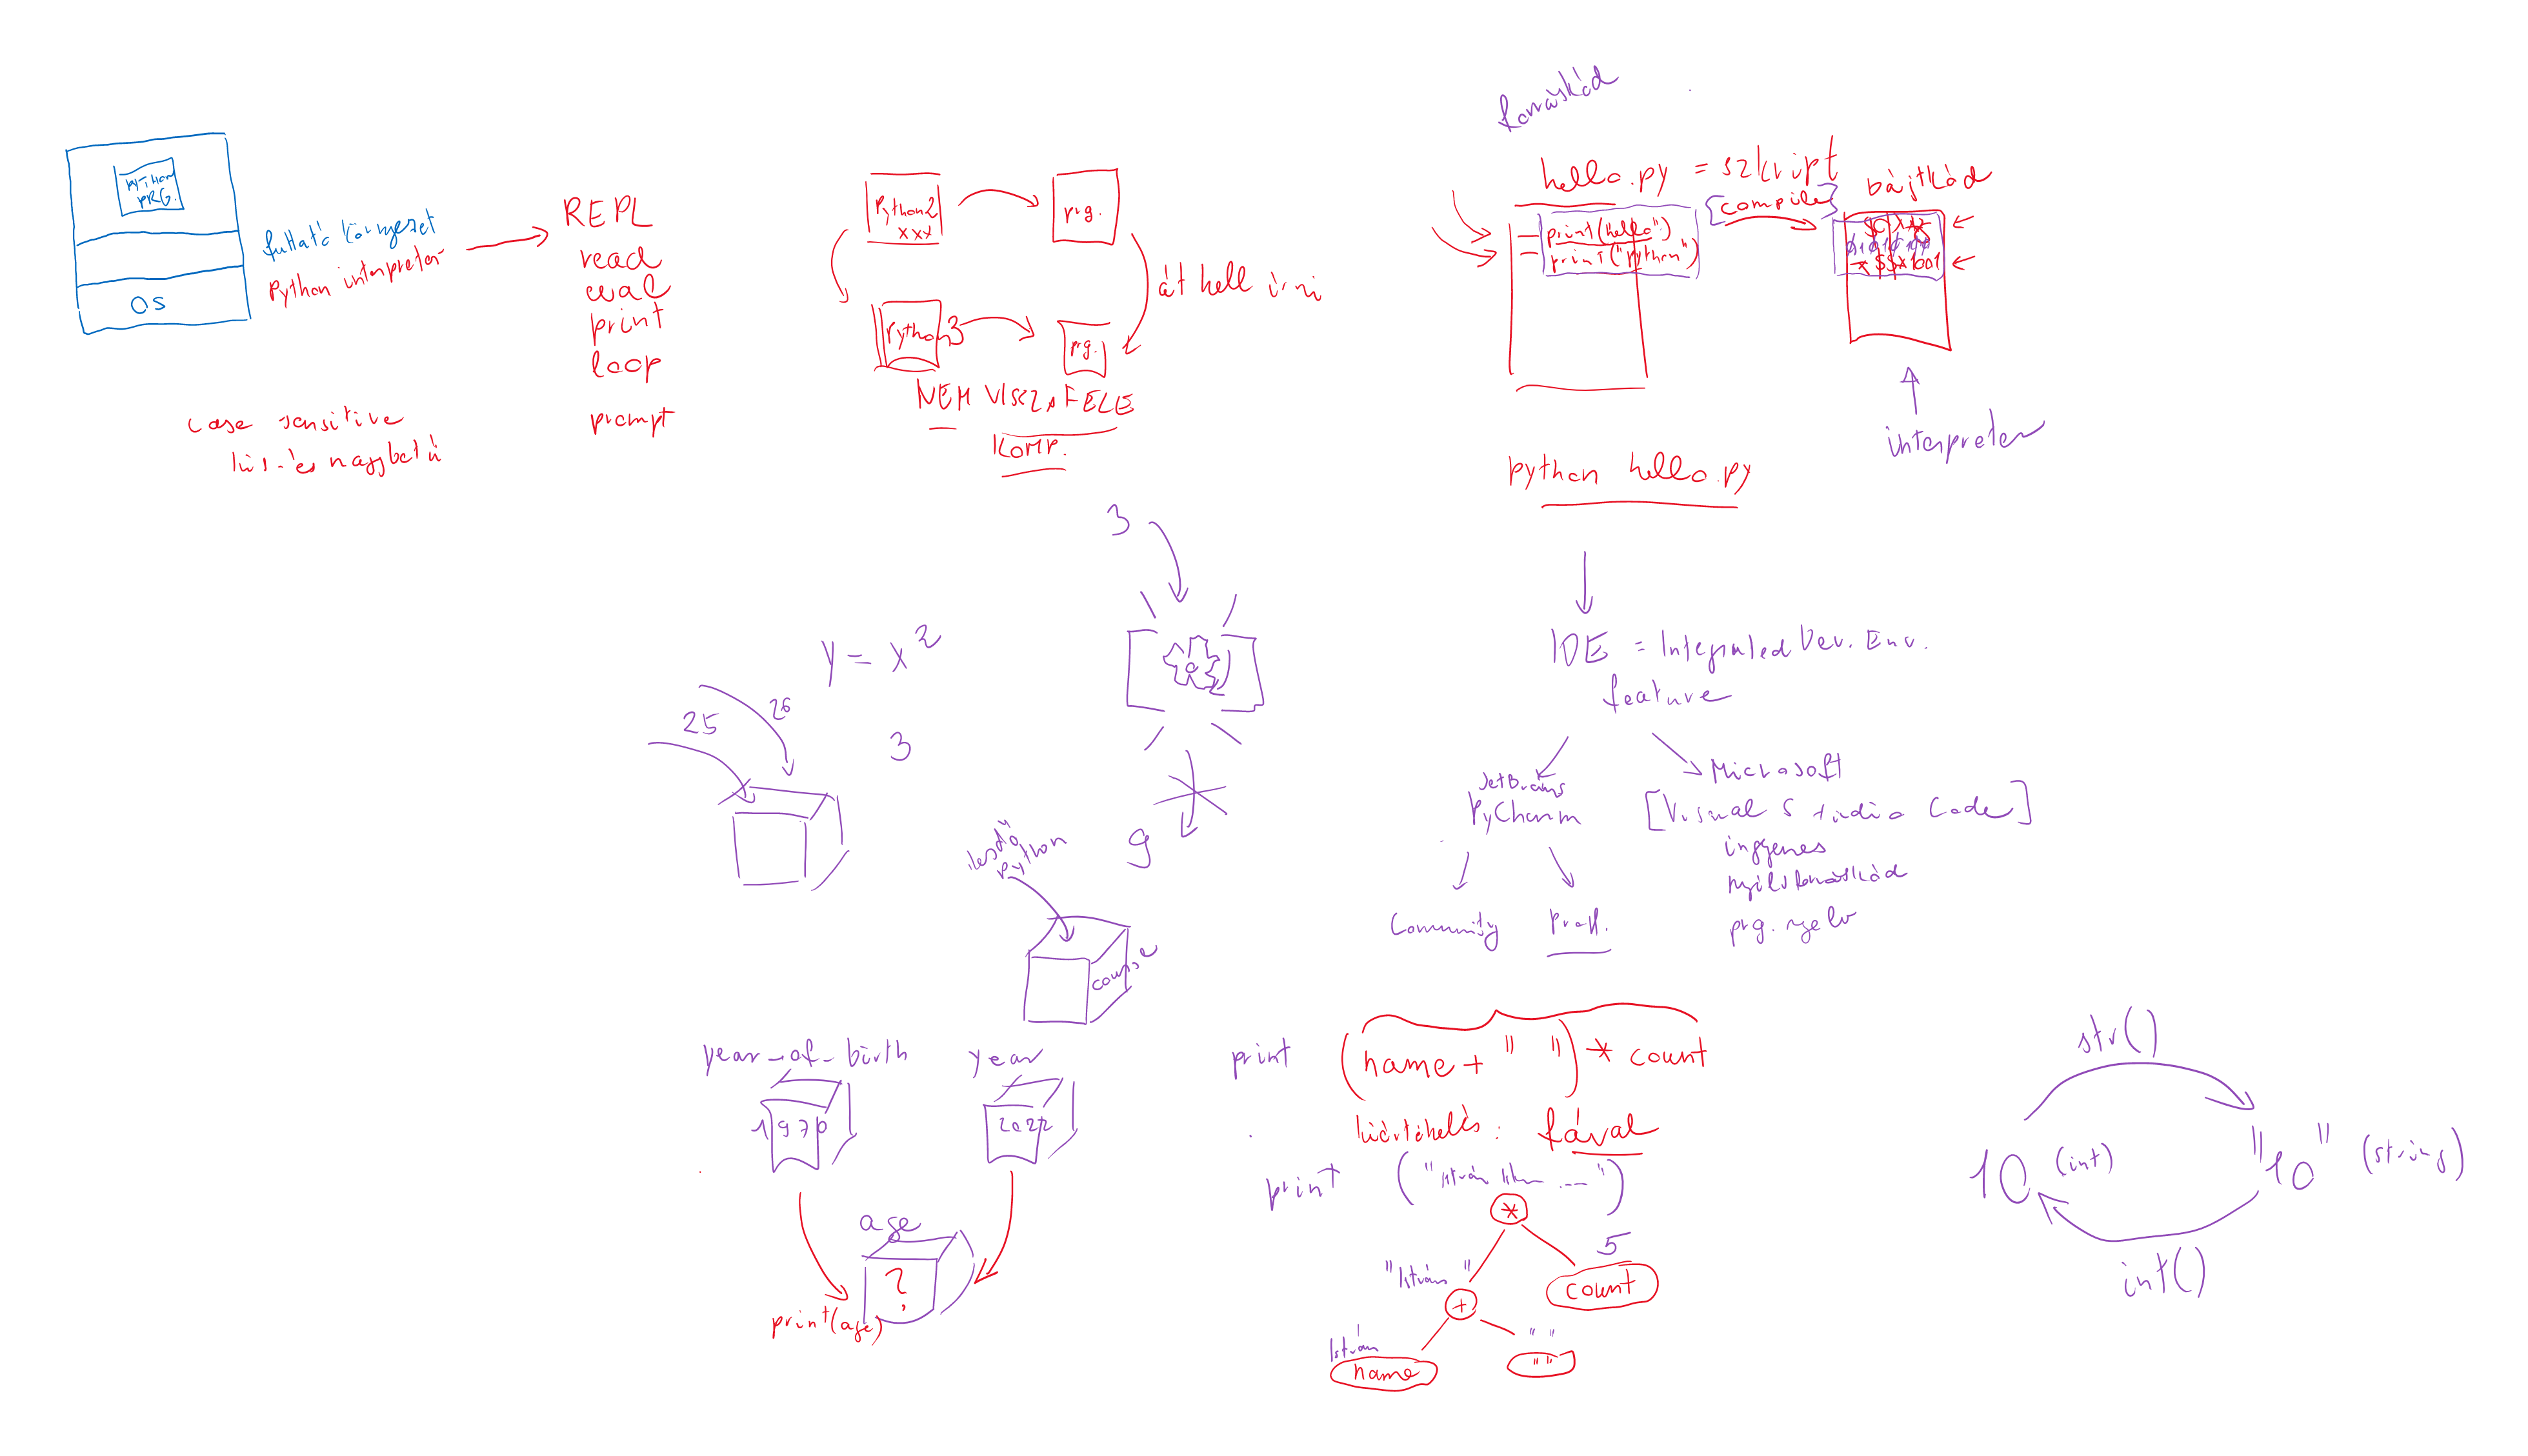 PYTHON
PRG.
OS
futtató környezet
Python interpreter
REPL
read
eval
print
loop
prompt
case sensitive
kis- és nagybetű
Python2
xxx
prg.
Python3
prg.
át kell írni
NEM VISSZAFELE
KOMP.
forráskód
hello.py = szkript
[compile]
bájtkód
print("hello")
print("python")
interpreter
python hello.py
IDE = Integrated Dev. Env.
feature
JetBrains
PyCharm
Community
Prof.
Microsoft
[Visual Studio Code]
ingyenes
nyílt forráskód
prg. nyelv
y = x²
3
25
26
3
9
kezdő
python
course
year_of_birth
year
1970
2022
age
?
print(age)
print (name + " ") * count
kiértékelés: fával
print ("István
*
"István "
5
count
+
István
name
" "
" "
str()
10 (int)
"10" (string)
int()